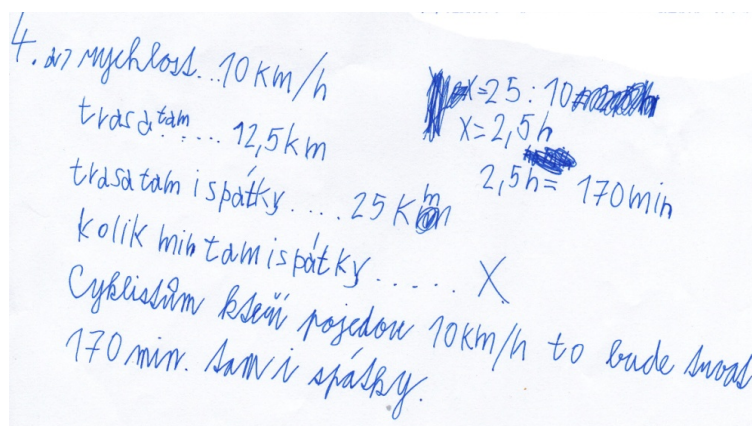 4. a) rychlost...10 km/h
trasa tam..... 12,5 km
trasa tam i spátky.... 25 km
kolik min tam i spátky..... X
X=25:10
X=2,5h
2,5h= 170 min
Cyklistům kteří pojedou 10 km/h to bude trvat
170 min. tam i spátky.